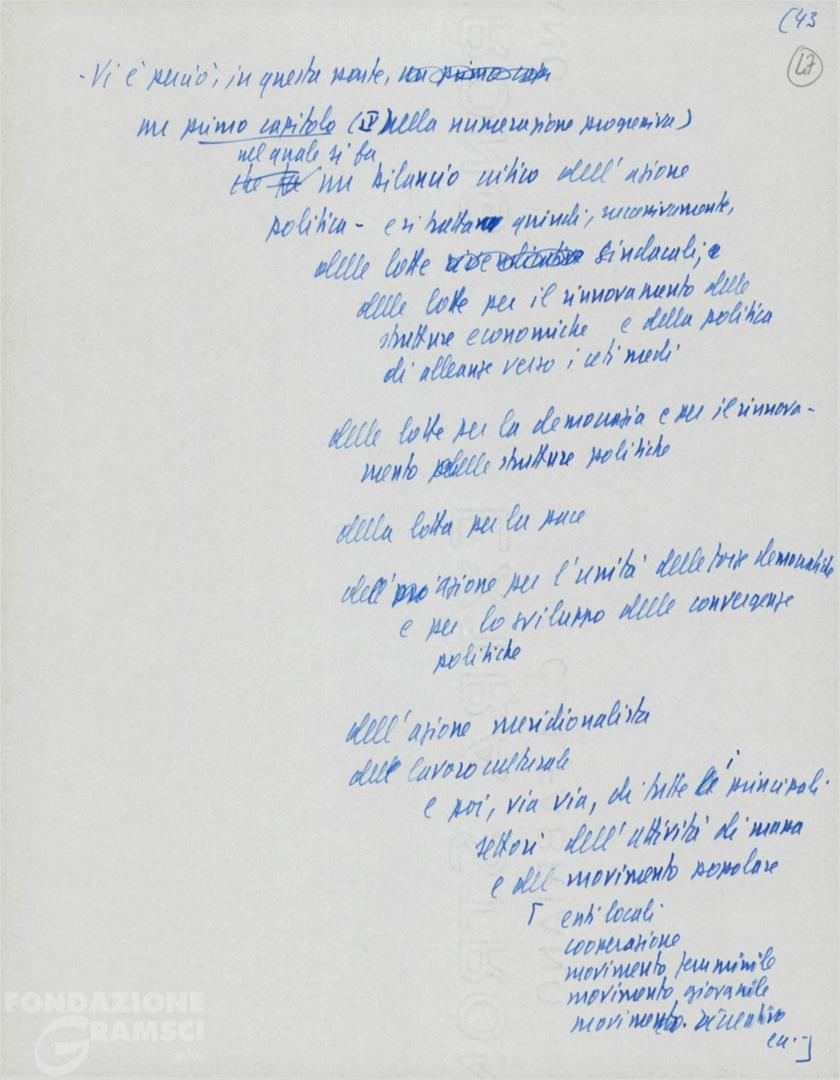 (43
47
- Vi è perciò, in questa parte, un primo cap
un primo capitolo (IV nella numerazione progressiva)
nel quale si fa
che fa un bilancio critico dell'azione
politica - e si tratta quindi, successivamente,
delle lotte rivendicative sindacali; e
delle lotte per il rinnovamento delle
strutture economiche e della politica
di alleanze verso i ceti medi
delle lotte per la democrazia e per il rinnova-
mento delle strutture politiche
della lotta per la pace
dell'azione per l'unità delle forze democratiche
e per lo sviluppo delle convergenze
politiche
dell'azione meridionalista
del lavoro culturale
e poi, via via, di tutti i principali
settori dell'attività di massa
e del movimento popolare
[ enti locali
cooperazione
movimento femminile
movimento giovanile
movimento ricreativo
ecc.]
FONDAZIONE
GRAMSCI
onlus